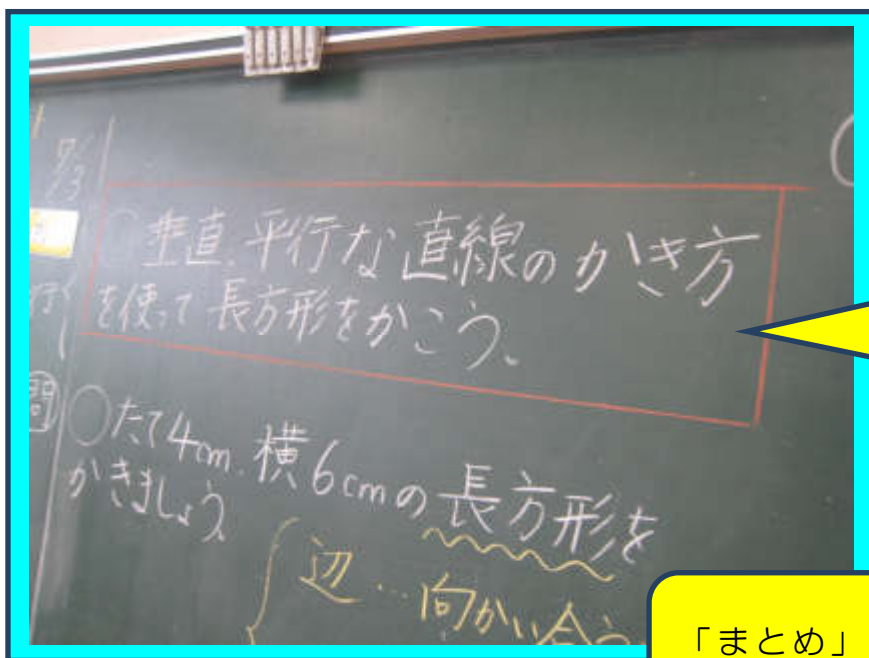 ○垂直、平行な直線のかき方
を使って長方形をかこう。
問
○たて4cm、横6cmの長方形を
かきましょう
辺…向かい合う
「まとめ」